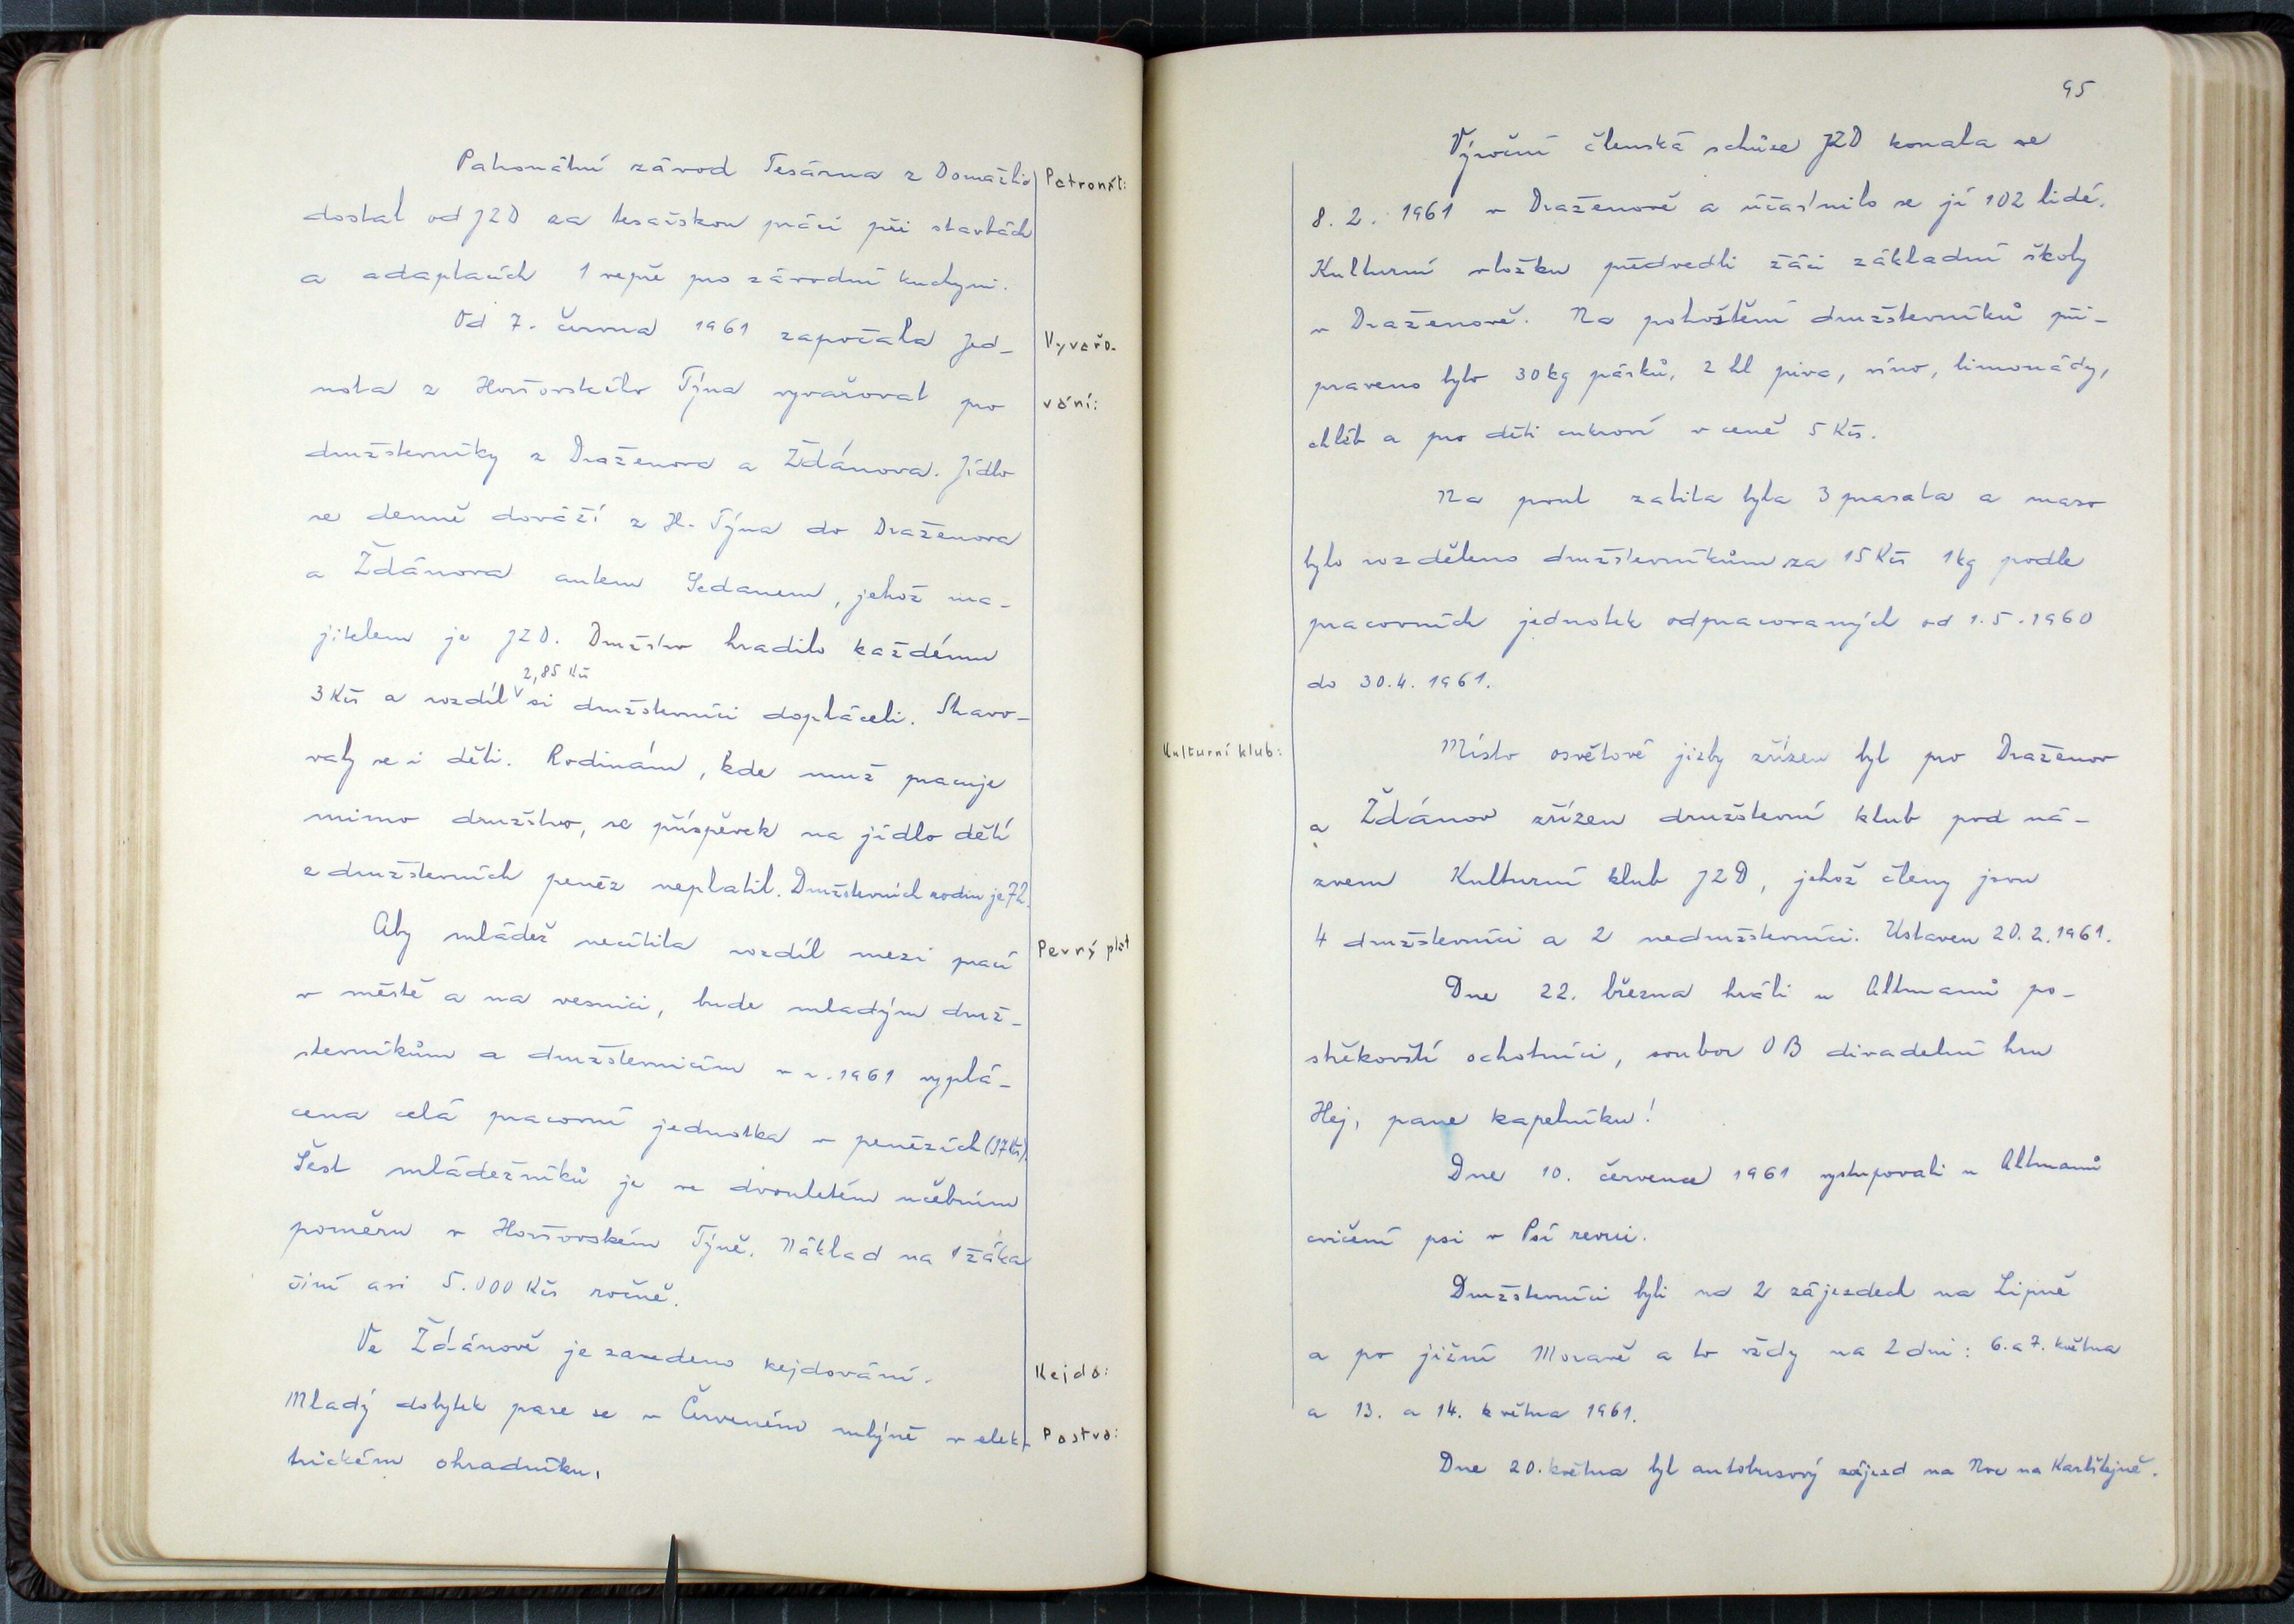 Patronátní závod Tesárna z Domažlic
Patronát:
dostal od JZD za tesařskou práci při stavbách
a adaptacích 1 vepře pro závodní kuchyni.
Od 7. června 1961 započala Jed-
Vyvařo-
nota z Horšovského Týna vyvařovat pro
vání:
družstevníky z Draženova a Ždánova. Jídlo
se denně dováží z H. Týna do Draženova
a Ždánova autem Sedanem, jehož ma-
jitelem je JZD. Družstvo hradilo každému
2,85 Kčs
3 Kčs a rozdíl si družstevníci dopláceli. Stravo-
valy se i děti. Rodinám, kde muž pracuje
mimo družstvo, se příspěvek na jídlo dětí
z družstevních peněz neplatil. Družstevních rodin je 72.
Aby mládež necítila rozdíl mezi prací
Pevný plat
v městě a na vesnici, bude mladým druž-
stevníkům a družstevnicím v r. 1961 vyplá-
cena celá pracovní jednotka v penězích (17 Kčs).
Šest mládežníků je ve dvouletém učebním
poměru v Horšovském Týně. Náklad na 1 žáka
činí asi 5.000 Kčs ročně.
Ve Ždánově je zavedeno kejdování.
Kejda:
Mladý dobytek pase se v Červeném mlýně v elek-
Pastva:
trickém ohradníku.
95
Výroční členská schůze JZD konala se
8. 2. 1961 v Draženově a účastnilo se jí 102 lidé.
Kulturní vložku předvedli žáci základní školy
v Draženově. Na pohoštění družstevníků při-
praveno bylo 30 kg párků, 2 hl piva, víno, limonády,
chléb a pro děti cukroví v ceně 5 Kčs.
Na pouť zabita byla 3 prasata a maso
bylo rozděleno družstevníkům za 15 Kčs 1 kg podle
pracovních jednotek odpracovaných od 1. 5. 1960
do 30. 4. 1961.
Kulturní klub:
Místo osvětové jizby zřízen byl pro Draženov
a Ždánov zřízen družstevní klub pod ná-
zvem Kulturní klub JZD, jehož členy jsou
4 družstevníci a 2 nedružstevníci. Ustaven 20. 2. 1961.
Dne 22. března hráli u Altmanů po-
střekovští ochotníci, soubor OB divadelní hru
Hej, pane kapelníku!
Dne 10. července 1961 vystupovali u Altmanů
cvičení psi v Psí revui.
Družstevníci byli na 2 zájezdech na Lipně
a po jižní Moravě a to vždy na 2 dni: 6. a 7. května
a 13. a 14. května 1961.
Dne 20. května byl autobusový zájezd na Noc na Karlštejně.